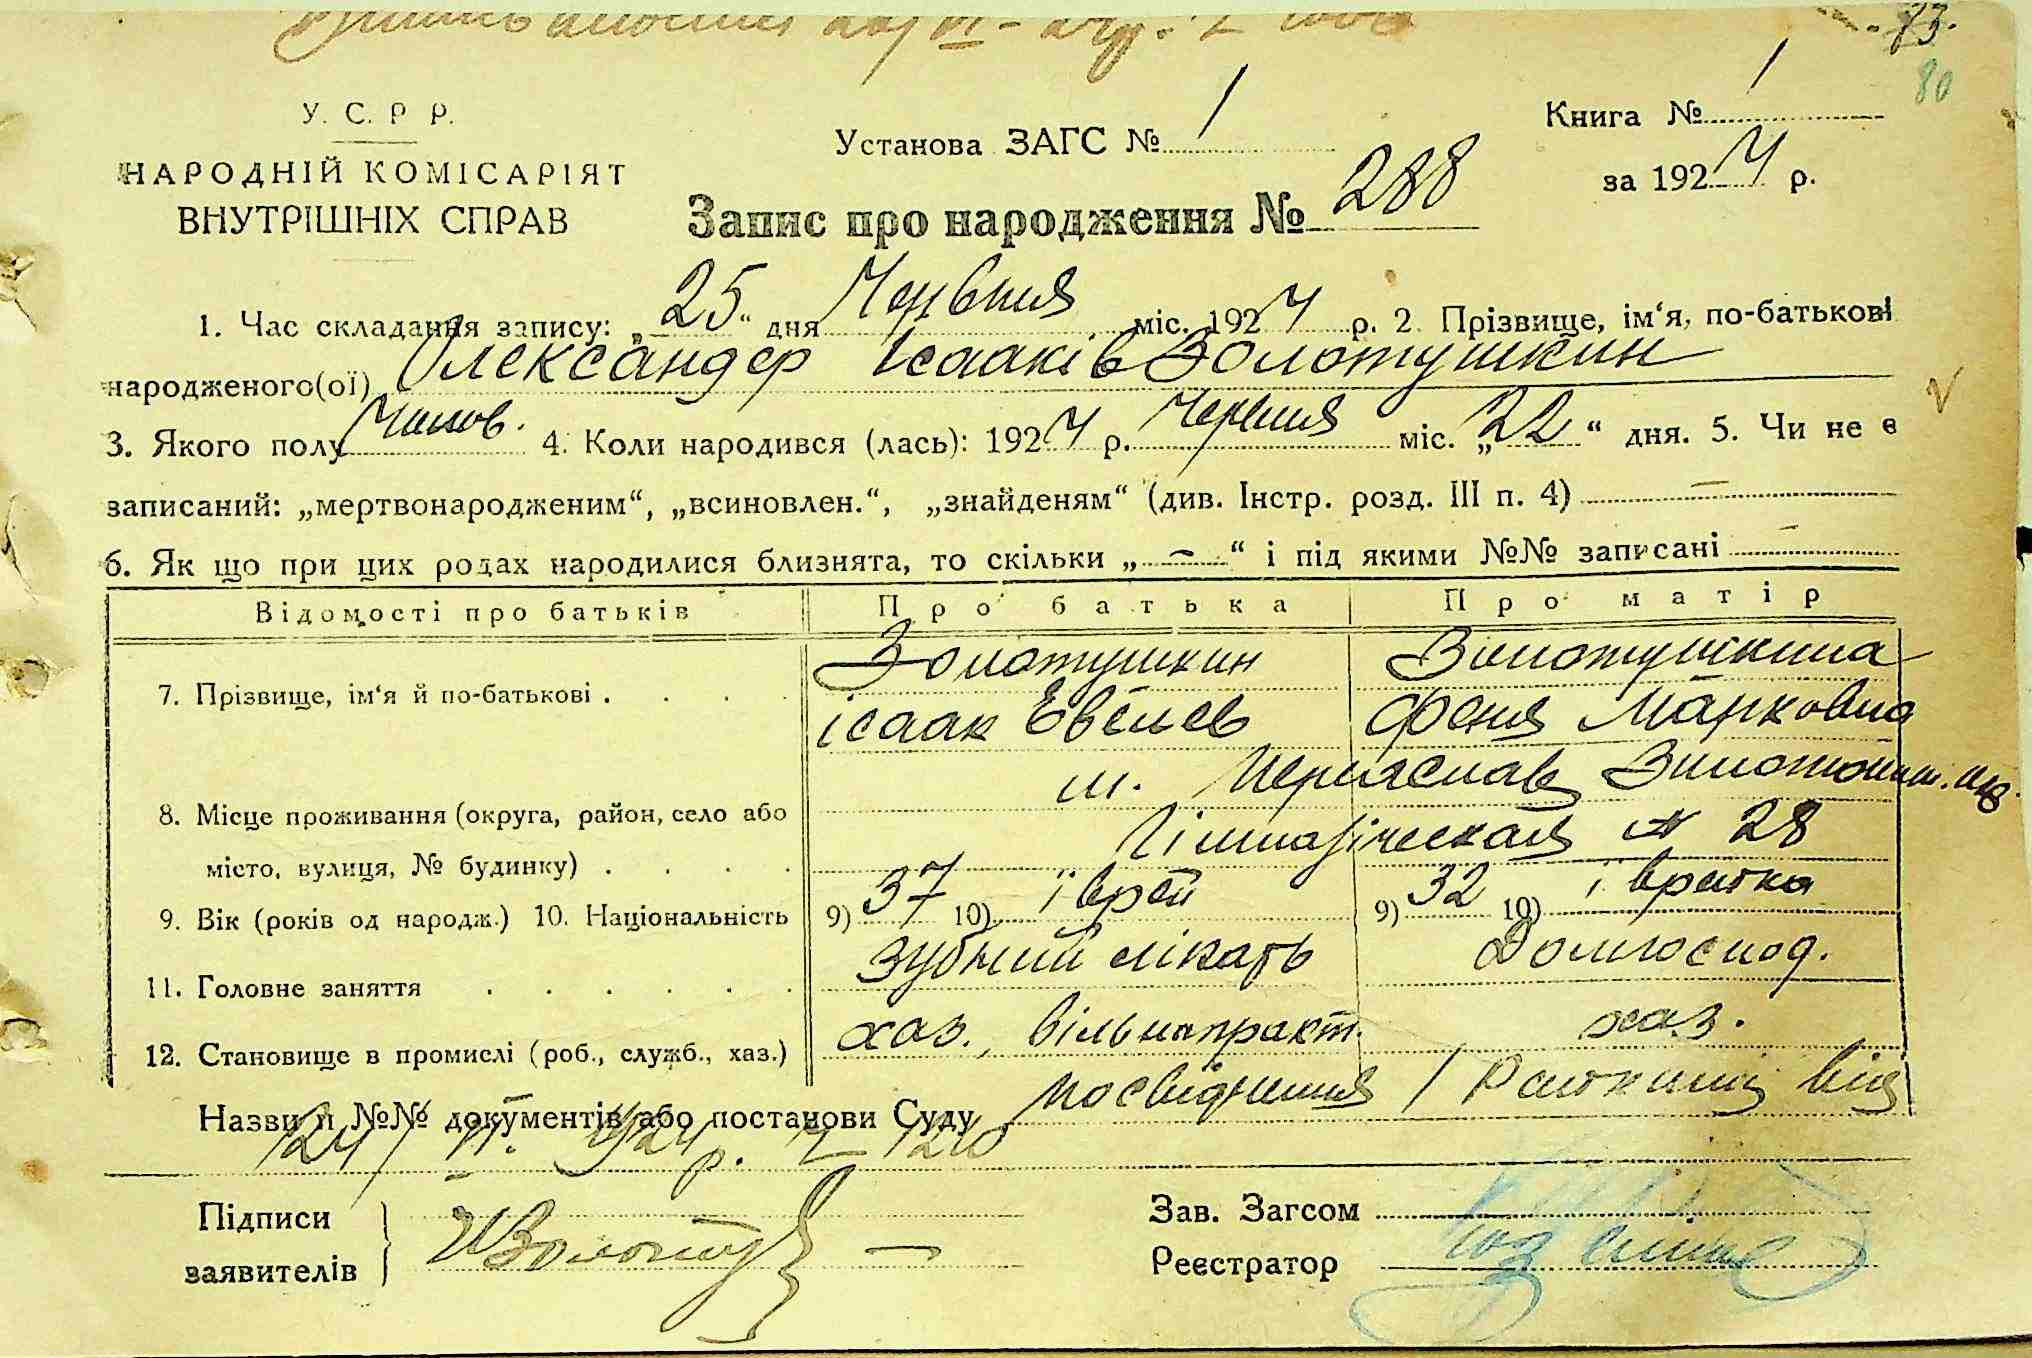 73.
80
У. С. Р Р.
НАРОДНІЙ КОМІСАРІЯТ
ВНУТРІШНІХ СПРАВ
Установа ЗАГС № 1
Книга № 1
за 1924 р.
Запис про народження № 288
1. Час складання запису: „25“ дня Червння міс. 1924 р. 2. Прізвище, ім‘я, по-батькові
народженого(ої) Олександер Ісааків Золотушкин
3. Якого полу Чолов. 4. Коли народився (лась): 1924 р. Червння міс. „22“ дня. 5. Чи не є
записаний: „мертвонародженим“, „всиновлен.“, „знайденям“ (див. Інстр. розд. III п. 4) —
6. Як що при цих родах народилися близнята, то скільки „—“ і під якими №№ записані —
Відомості про батьків Про батька Про матір
7. Прізвище, ім‘я й по-батькові . . . . Золотушкин Золотушкина
ісаак Евелев Феня Марковна
м. Переяслав Золотоніш.
8. Місце проживання (округа, район, село або
місто, вулиця, № будинку) . . . . Гімназіческая № 28
9. Вік (років од народж.) 10. Національність 9) 37 10) іврей 9) 32 10) івреяка
11. Головне заняття . . . . . . зубний лікарь Домгоспод.
12. Становище в промислі (роб., служб., хаз.) хаз., вільнапракт. хаз.
Назви й №№ документів або постанови Суду посвіднення
24/ 1924 р.
Підписи
заявителів
Зав. Загсом
Реєстратор